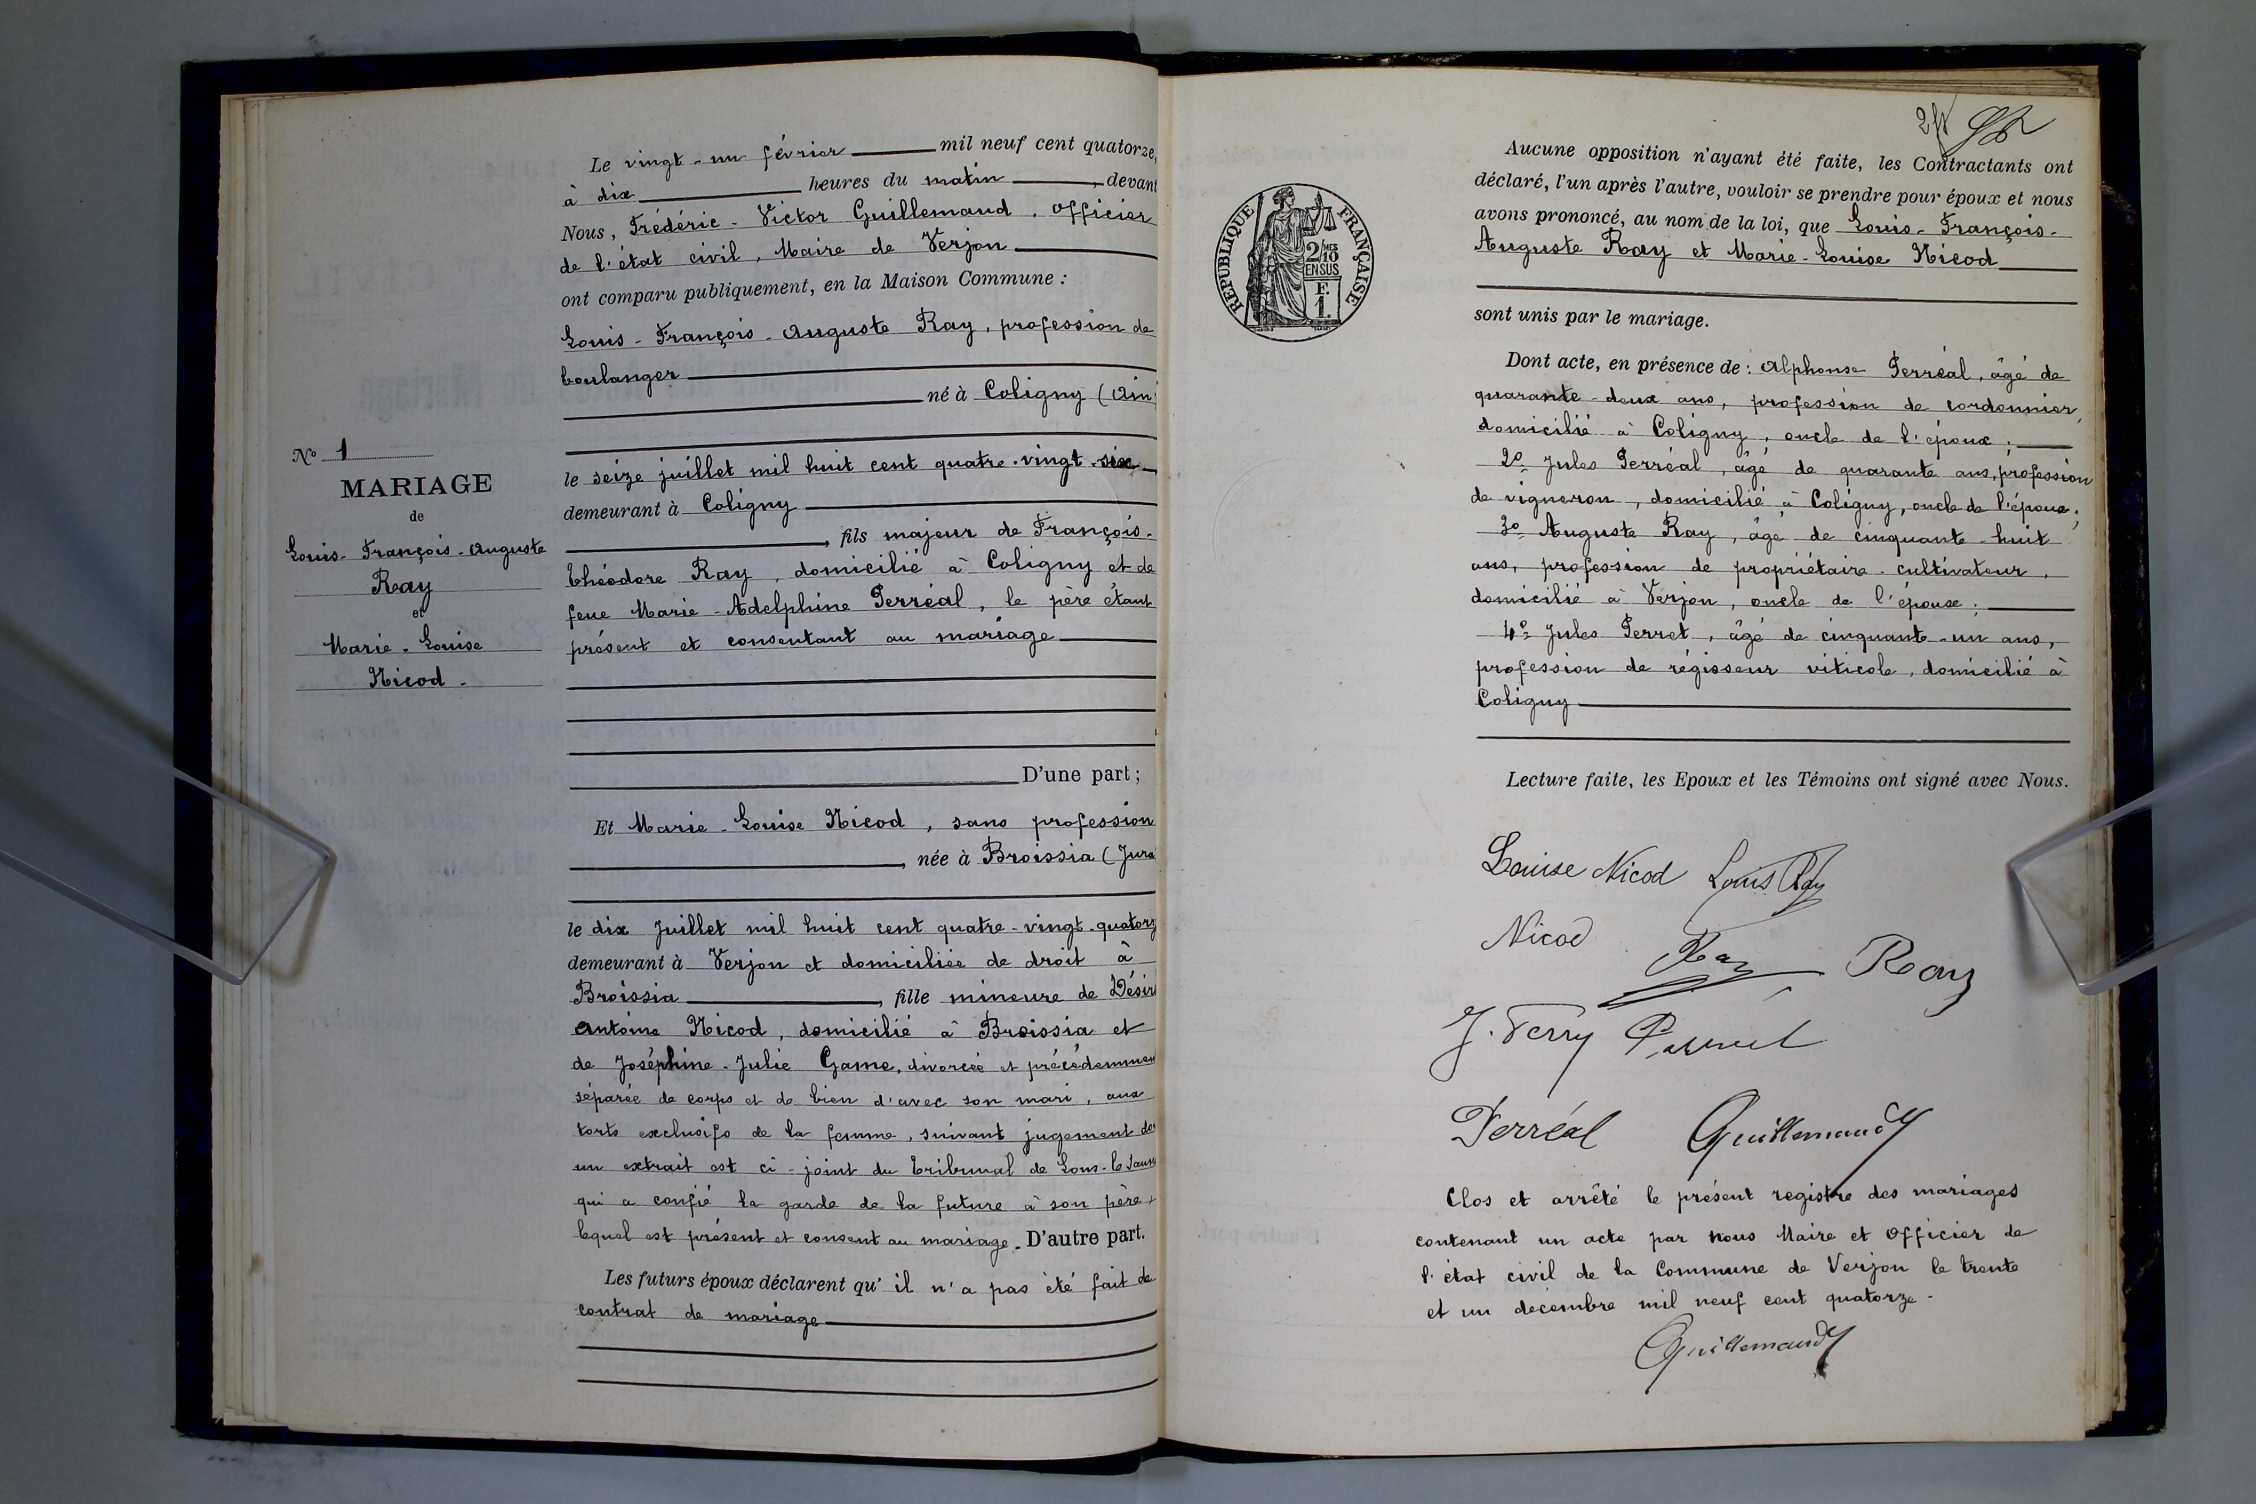 Le vingt-un février mil neuf cent quatorze,
à dix heures du matin, devant
Nous, Frédéric-Victor Guillemaud, officier
de l'état civil, Maire de Verjon
ont comparu publiquement, en la Maison Commune :
Louis-François-Auguste Ray, profession de
boulanger
né à Coligny (Ain)
le seize juillet mil huit cent quatre-vingt-six
demeurant à Coligny
, fils majeur de François-
Théodore Ray, domicilié à Coligny et de
feue Marie-Adelphine Perréal, le père étant
présent et consentant au mariage
D'une part ;
Et Marie-Louise Nicod, sans profession
, née à Broissia (Jura
le dix Juillet mil huit cent quatre-vingt-quatorz
demeurant à Verjon et domiciliée de droit à
Broissia, fille mineure de Désiré
Antoine Nicod, domicilié à Broissia et
de Joséphine-Julie Game, divorcée et précédemmen
séparée de corps et de bien d'avec son mari, aux
torts exclusifs de la femme, suivant jugement do
un extrait est ci-joint du tribunal de Lons-le-Saun
qui a confié la garde de la future à son père,
lequel est présent et consent au mariage. D'autre part.
Les futurs époux déclarent qu'il n'a pas été fait de
contrat de mariage
No 1
MARIAGE
de
Louis-François-Auguste
Ray
et
Marie-Louise
Nicod.
2f
RÉPUBLIQUE FRANÇAISE
2/10
EN SUS
F.
1.
Aucune opposition n'ayant été faite, les Contractants ont
déclaré, l'un après l'autre, vouloir se prendre pour époux et nous
avons prononcé, au nom de la loi, que Louis-François-
Auguste Ray et Marie-Louise Nicod
sont unis par le mariage.
Dont acte, en présence de : Alphonse Perréal, âgé de
quarante-deux ans, profession de cordonnier,
domicilié à Coligny, oncle de l'époux ;
2o Jules Perréal, âgé de quarante ans, profession
de vigneron, domicilié à Coligny, oncle de l'époux ;
3o Auguste Ray, âgé de cinquante-huit
ans, profession de propriétaire-cultivateur,
domicilié à Verjon, oncle de l'épouse ;
4o Jules Perret, âgé de cinquante-un ans,
profession de régisseur viticole, domicilié à
Coligny
Lecture faite, les Epoux et les Témoins ont signé avec Nous.
Louise Nicod Louis Ray
Nicod Ray Ray
J. Perry
Perréal Guillemaud
Clos et arrêté le présent registre des mariages
contenant un acte par nous Maire et Officier de
l'état civil de la Commune de Verjon le trente
et un décembre mil neuf cent quatorze.
Guillemaud